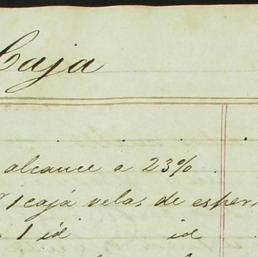 Caja
alcance a 23%
1 caja velas de esper
1 id id